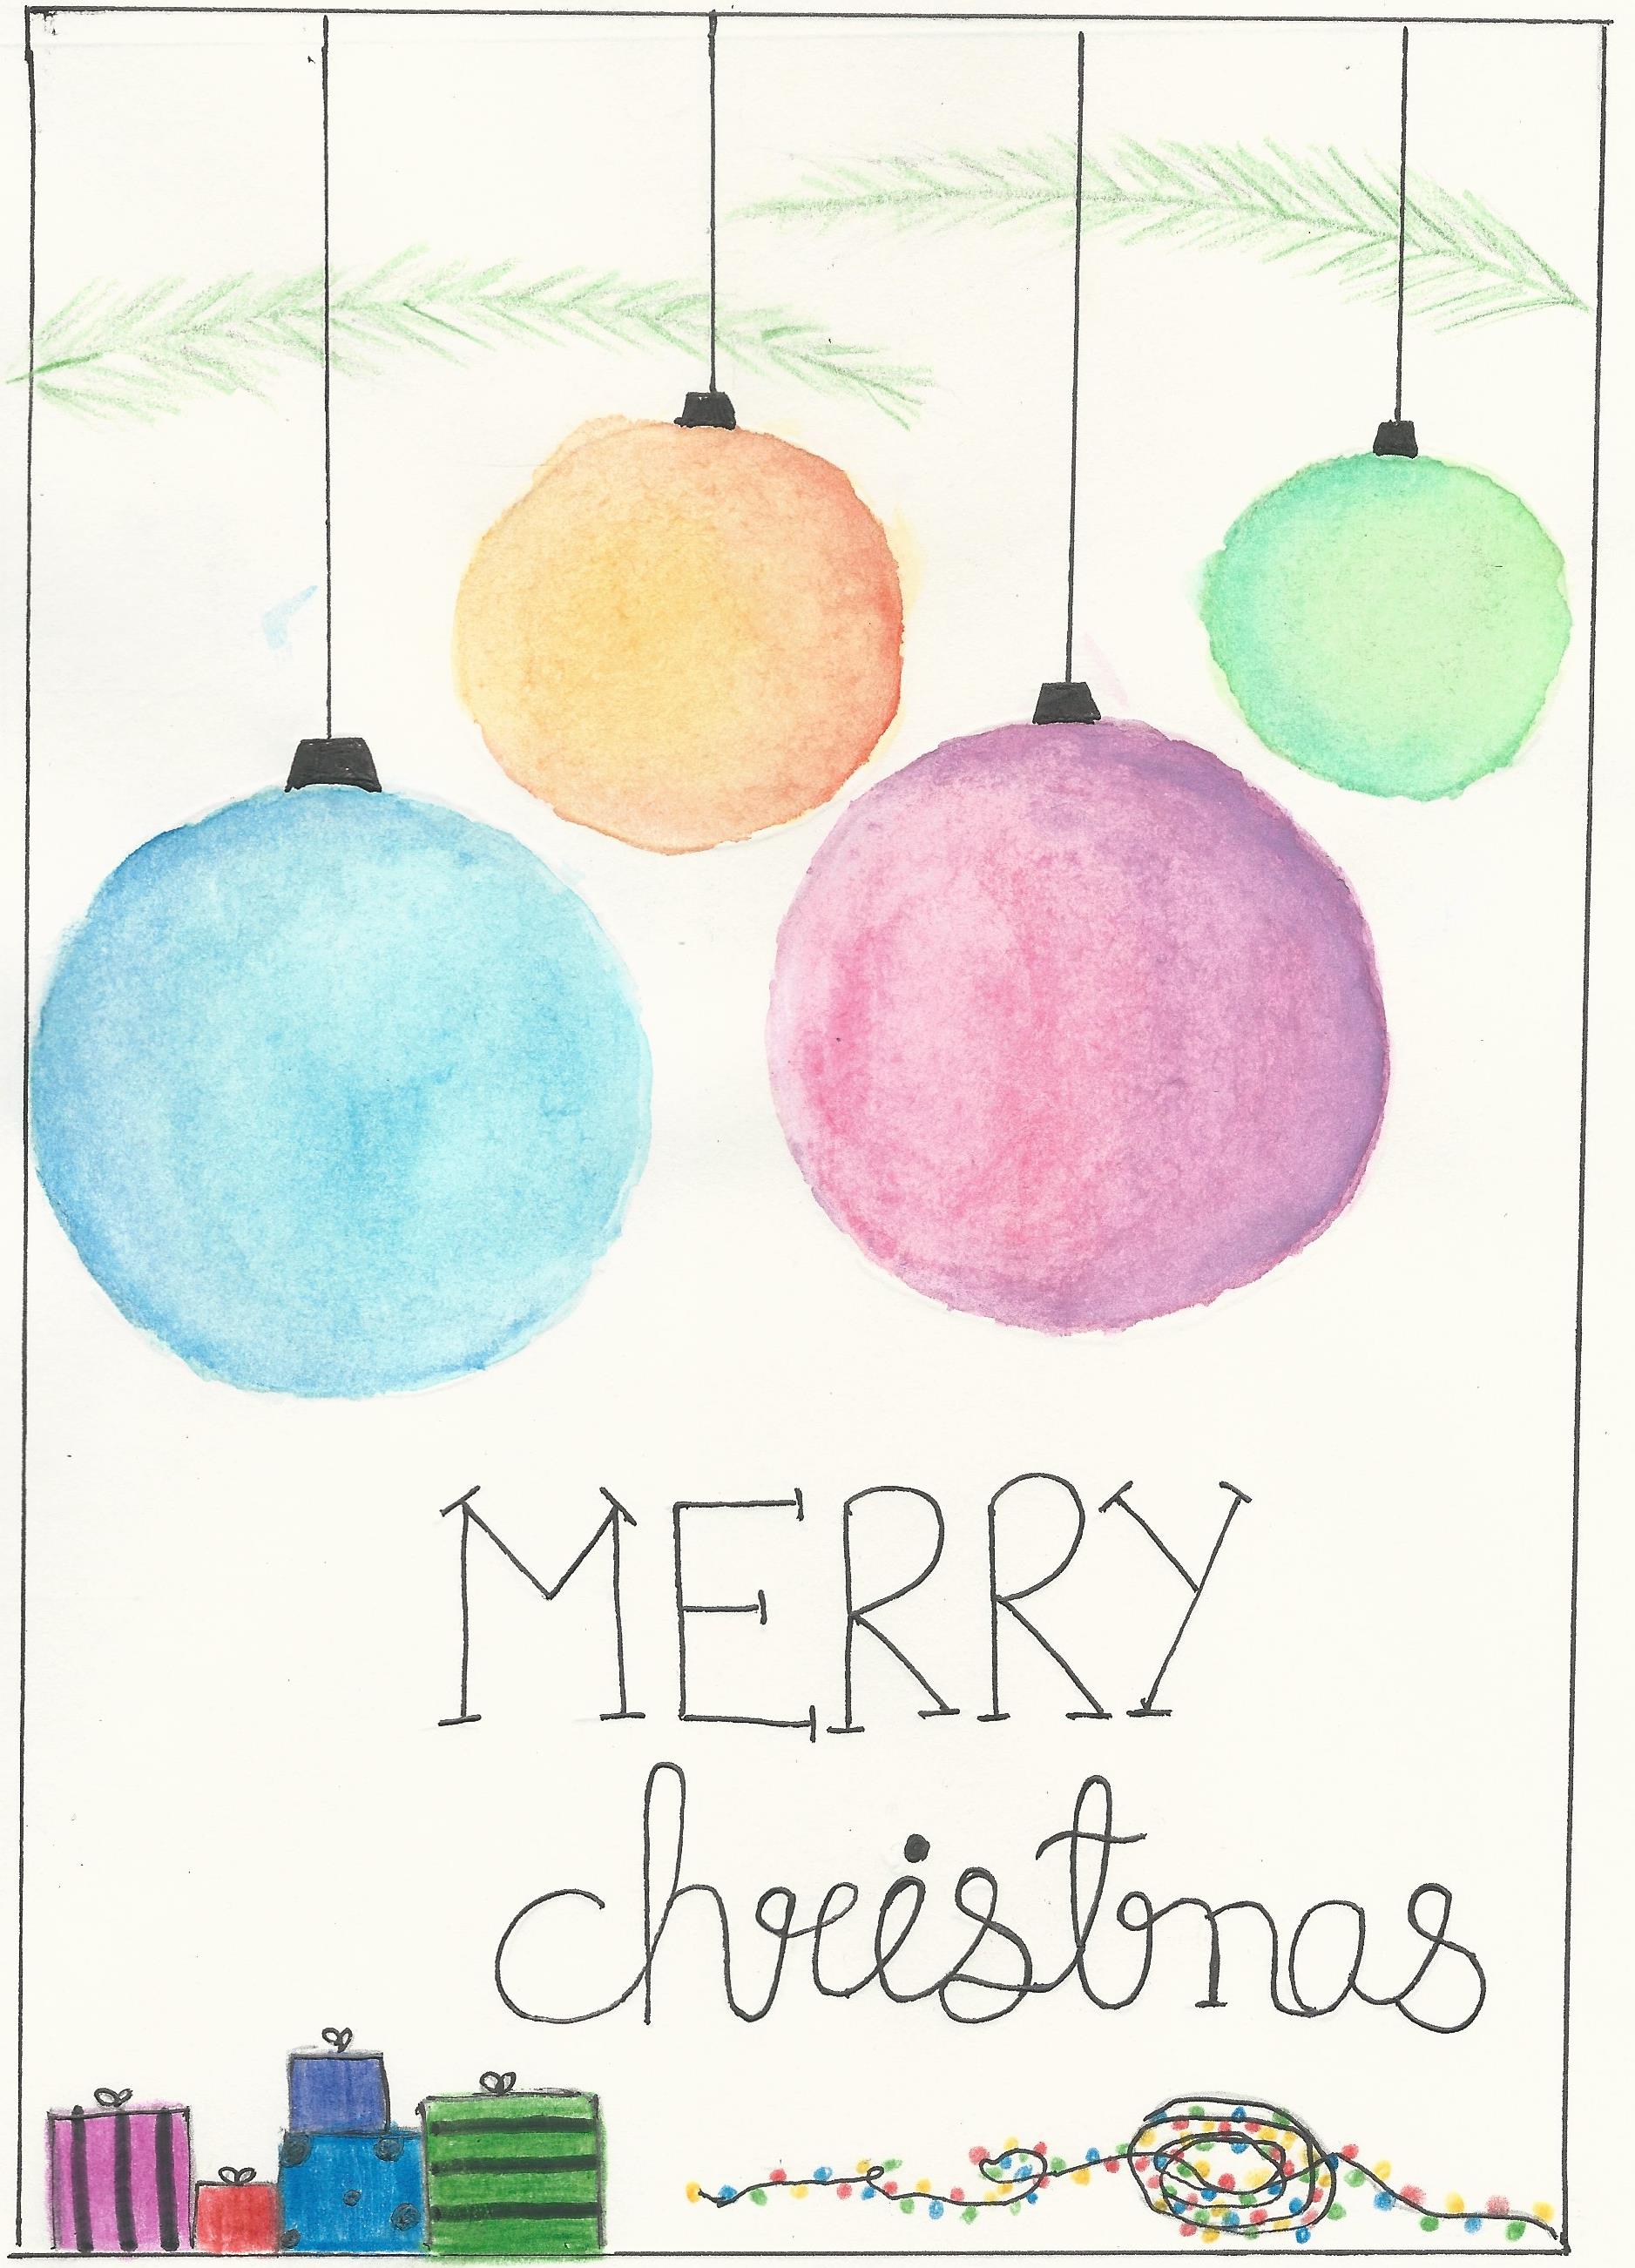 MERRY
christmas